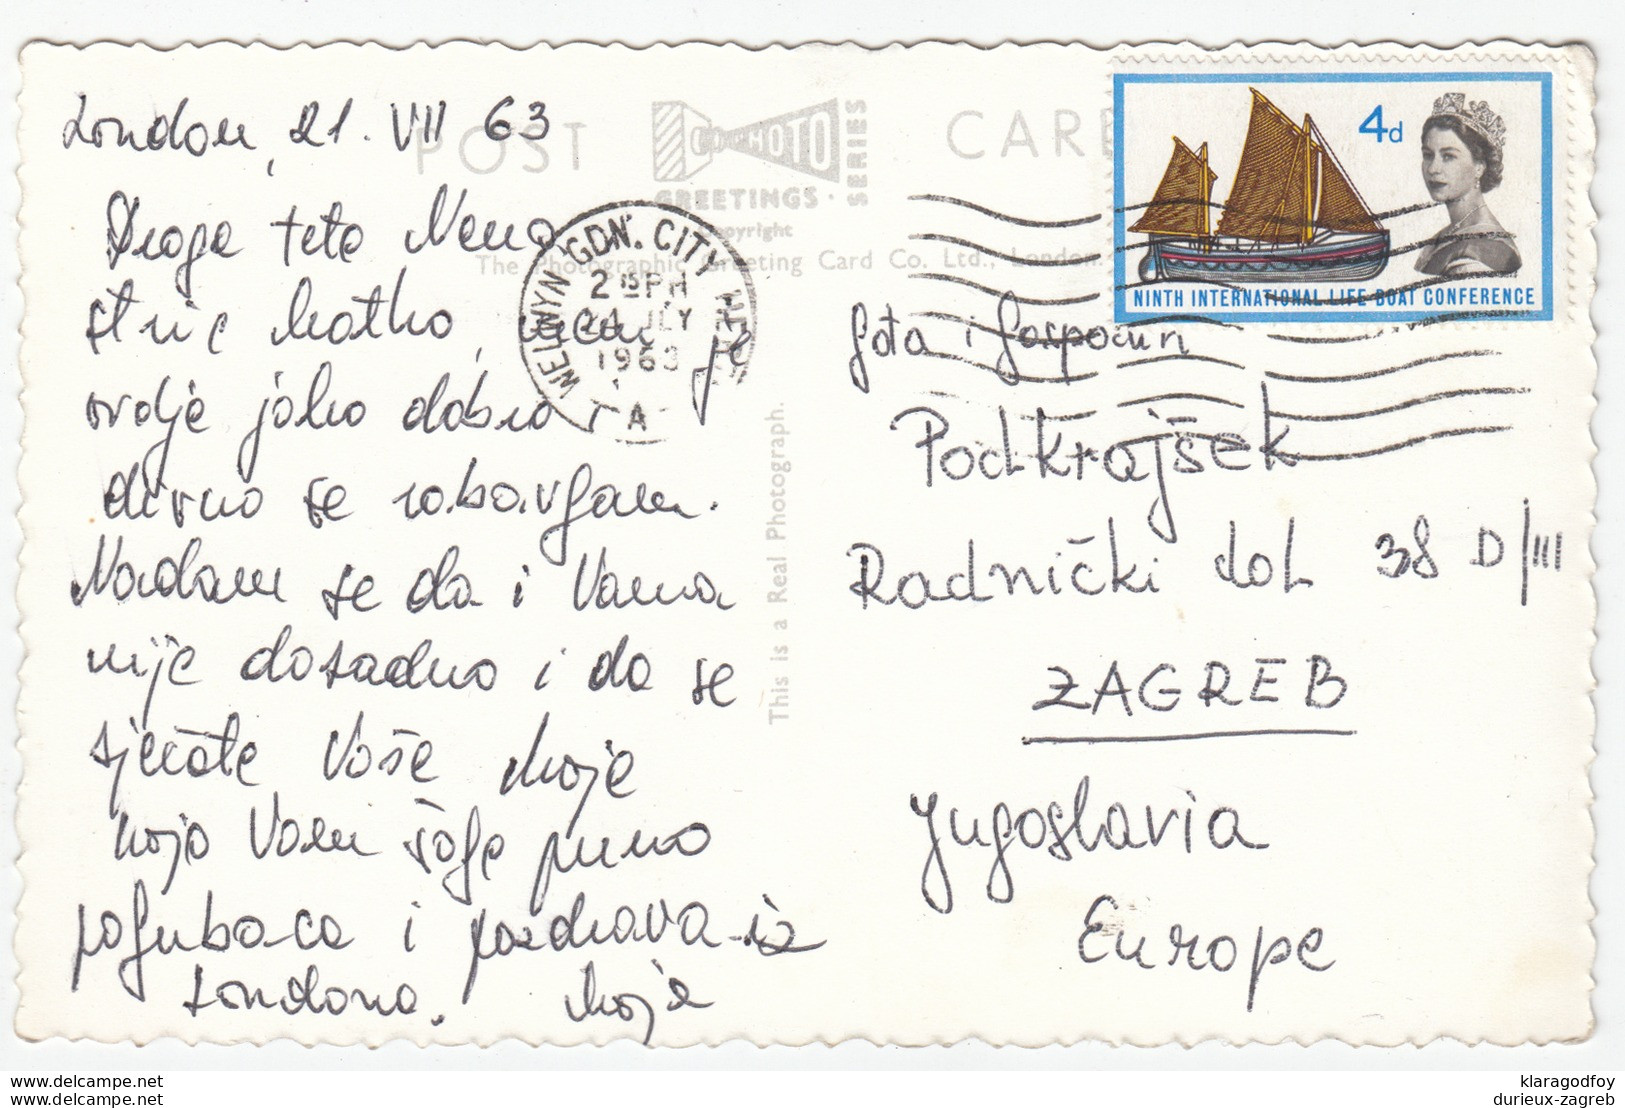 London, 21. VII 63
Draga teto Neno
striče Ratko, meni je
ovdje jako dobro i
divno se zabavljam.
Nadam se da i Vama
nije dosadno i da se
sjećate Vaše Maje
koja Vam šalje puno
poljubaca i pozdrava iz
Londona. Maja
POST CARD
PHOTO
GREETINGS
SERIES
Copyright
The Photographic Greeting Card Co. Ltd., London.
This is a Real Photograph.
WELWYN GDN. CITY HERTS
2 15 PM
JLY
1963
A
4d
NINTH INTERNATIONAL LIFE-BOAT CONFERENCE
Gđa i Gospodin
Podkrajšek
Radnički dol 38 D/III
ZAGREB
Jugoslavia
Europe
klaragodfoy
delcampe.net
durieux-zagreb
delcampe.net